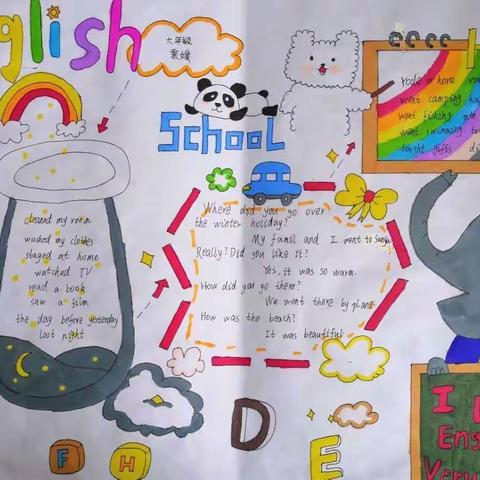 glish
六年级
袁媛
School
rode a horse
went camping
went fishing ate
went swimming
bought gifts
cleaned my room
washed my clothes
stayed at home
watched TV
read a book
saw a film
the day before yesterday
last night
Where did you go over
the winter holiday?
My famil and I went to Sanya
Really? Did you like it?
Yes, it was so warm.
How did you go there?
We went there by plane.
How was the beach?
It was beautiful
F
H
D
E
I
Eng
Very